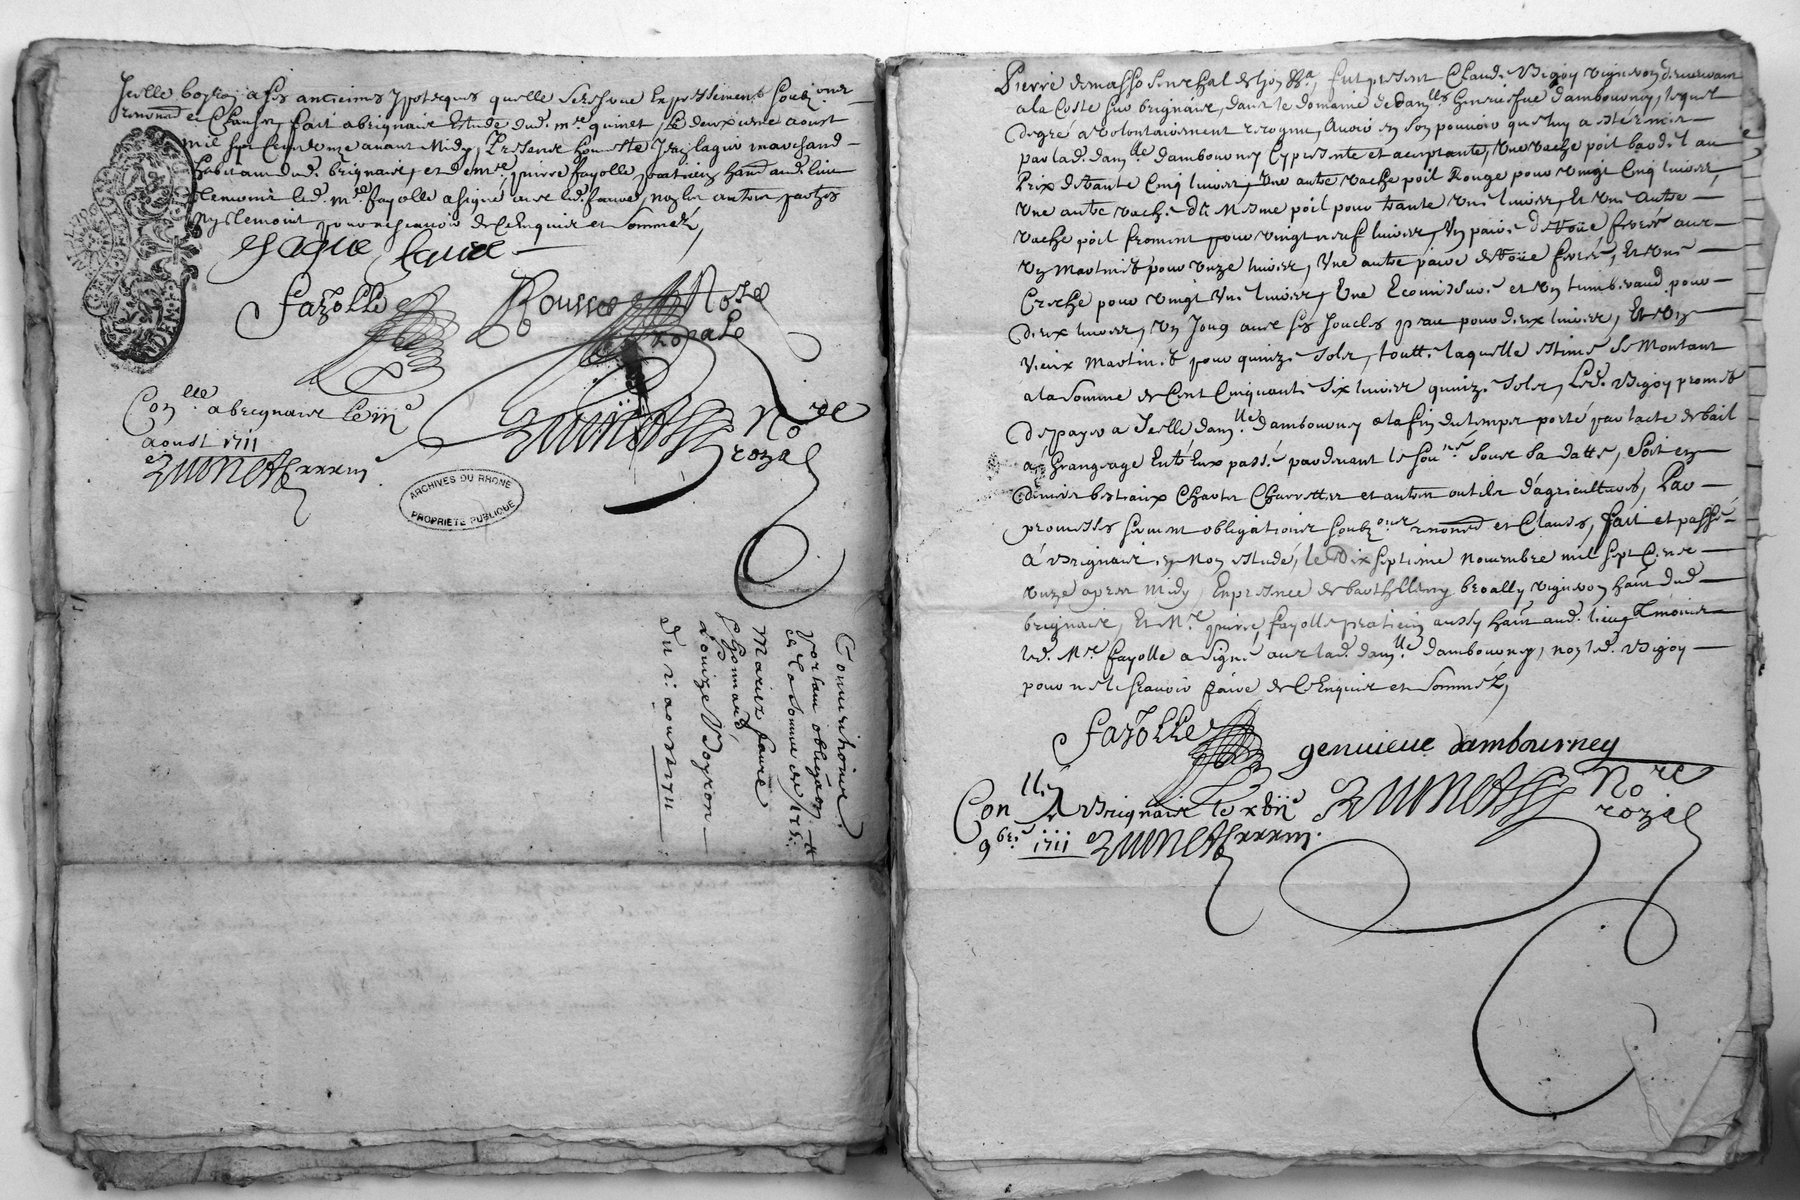 Jcelle boyron a ses antiennes ypoteques quelle se reserve Expressement soubz oner
renoncd et Clauses, fait a brignais Estude dud. mre quinet, le deuxieme aoust
mil sept Cent onze avant Midy, Presence marchand
habitant dud. brignais, et de mre pierre fayolle praticien habnt aud. lieu
led. mre fayolle a signé avec led. faure, non les autres parties
ny le temoint pour ne scavoir de ce Enquis et Sommés,
faure
fayolle
Rousset Nore
royale
quinet Nore
royal
Conlle a brignais le iiie
aoust 1711
quinet
ARCHIVES DU RHONE
PROPRIETE PUBLIQUE
Convention
portant obligaon
de la somme de
Mariez faure
&
Louize Boyron
du 2. aoust 1711
Pierre demasso senechal de lyon &a, fut present Claude Bigoy vigneron demeurant
a la Coste sur brignais, dans le domaine de damlle Geneviefve dambourney, lequel
de gré a volontairement recognu, Avoir en son pouvoir
par lad. damlle dambourney Cy presente et acceptante, Une vache poil bardel au
Prix de trante Cinq livres, Une autre vache poil Rouge pour vingt Cinq livres,
Une autre vache du Mesme poil pour trante Une livres, Et Une Autre
vache poil froment pour vingt neuf livres, Un paire de roüe ferré avec
Un Martinet pour Unze livres, Une autre paire de roüe ferré, Et Une
Creche pour vingt Une livres, Une et Un tumbereaud pour
deux livres, Un Joug avec ses Joucles peau pour deux livres, Et Un
Vieux Martinet pour quinze solz, toutte laquelle Estime se Montant
a la somme de Cent Cinquante Six livres quinze Solz, Led. Bigoy promet
de payer a Jcelle damlle dambourney a la fin du temps porté par lacte de bail
a Grangeage Entr Eux passé pardevant le sousné sous sa datte, Soit en
deniers bestiaux Chars Charrettes et autres outils d'agriculture, Par
promesses serment obligations soubz oner renoncd et Clauses, fait et passé
A Brignais en Mon estude, le Dix septieme novembre mil sept Cent
Unze apres Midy, En presence de barthellemy broally vigneron habnt dud.
brignais, Et Mre pierre fayolle praticien aussy habnt aud. lieu temoins
led. Mre fayolle a signé avec lad. damlle dambourney, non led. Bigoy
pour ne le scavoir faire de ce Enquis et Sommés,
fayolle
genvieve dambourney
quinet Nore
royal
Conlle A Brignais le xviie
9bre 1711 quinet